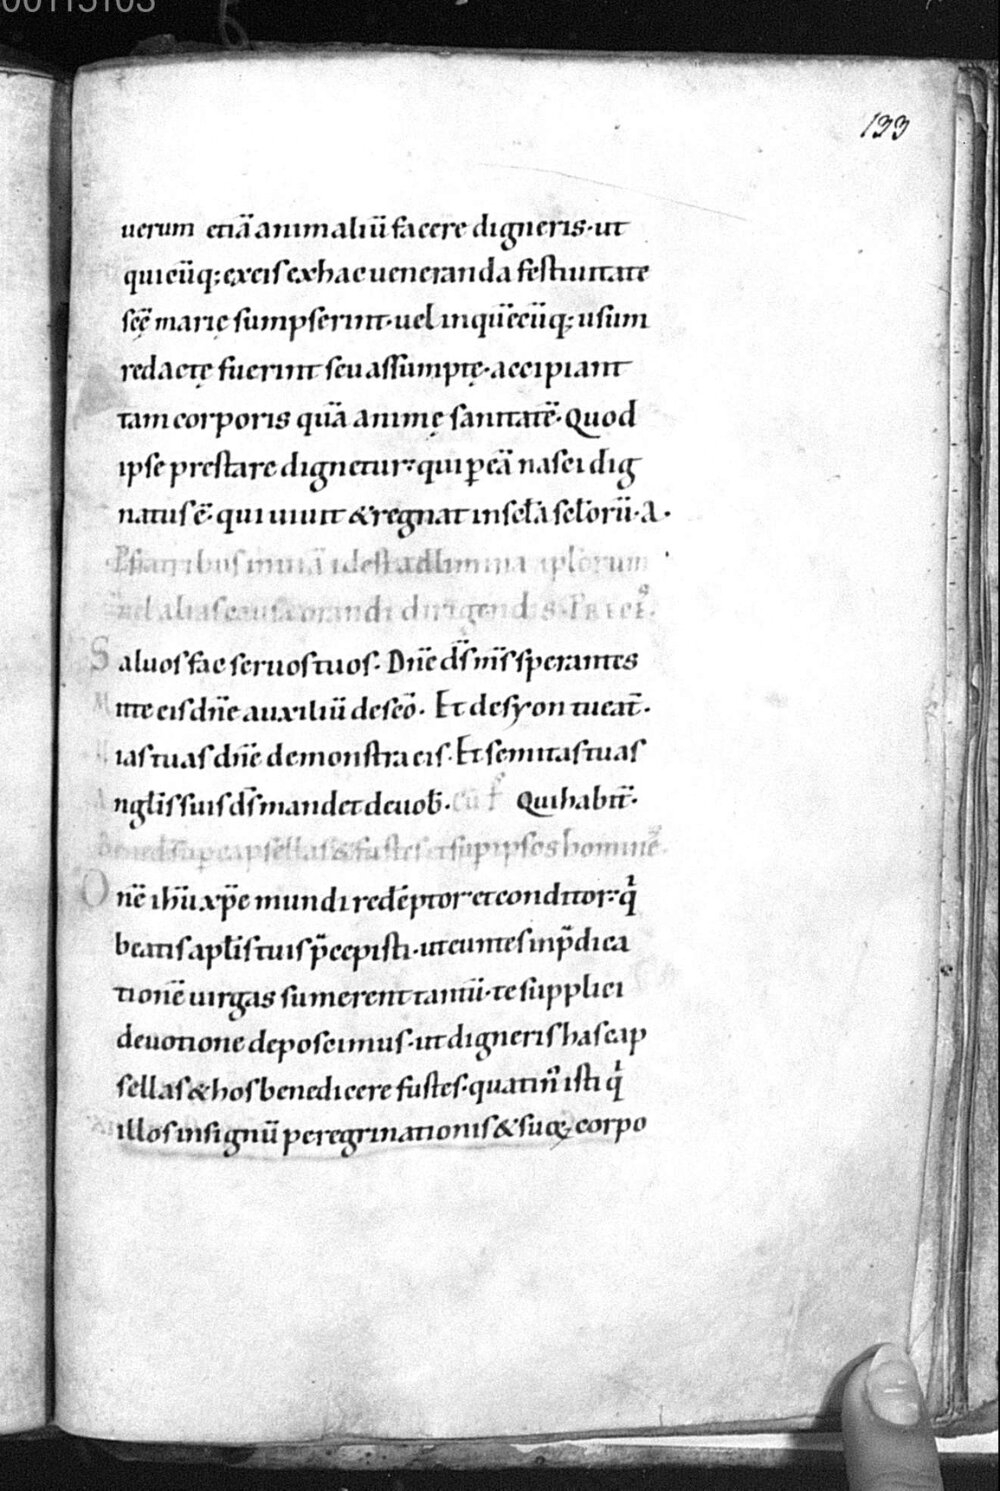 00115103
133
uerum etiā animaliū facere digneris· ut
quicūq; ex eis ex hac ueneranda festiuitate
scę̄ marię sumpserint· uel in quēcūq; usum
redactę fuerint seu assumptę· accipiant
tam corporis quā animę sanitatē· Quod
ipse prestare dignetur· qui p eā nasci dig
natus ē· qui uiuit & regnat in scła scłorū· A·
fratribus in uiā id est ad limina apłorum
uel alias causa orandi dirigendis·
Saluos fac seruos tuos· Dn̄e ds̄ ms̄ sperantes
Mitte eis dn̄e auxiliū de scō· Et de syon tueat̄·
Uias tuas dn̄e demonstra eis· Et semitas tuas
Angłis suis ds̄ mandet de uob̄· Qui habit̄·
capsellas & fustes et sup ipsos homines
Dn̄e ihū xp̄e mundi redēptor et conditor· q
beatis apłis tuis p̄cepisti· ut euntes in p̄dica
tionē uirgas sumerent tantū· te supplici
deuotione deposcimus· ut digneris has cap
sellas & hos benedicere fustes· quatin isti q
illos in signū peregrinationis & suoꝝ corpo